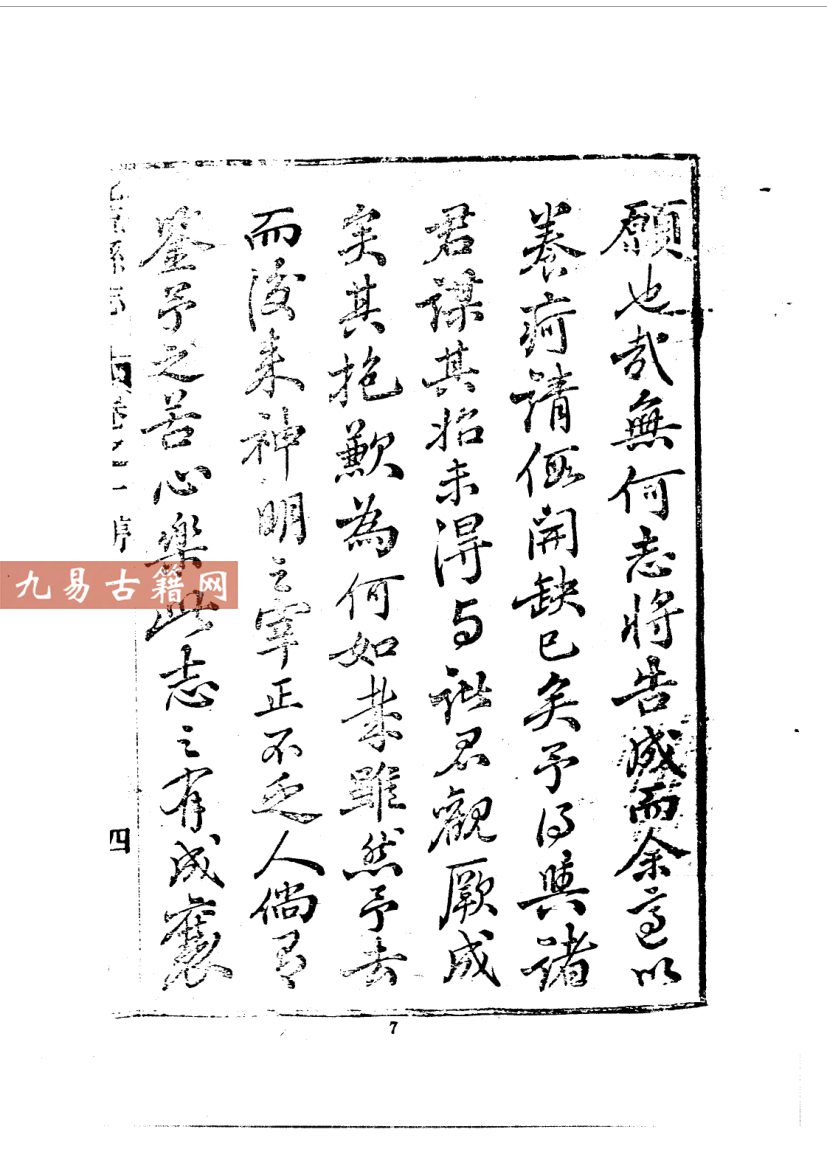 願也哉無何志將告成而余適以
養疴請假開缺已矣予得與諸
君謀其始未得與諸君觀厥成
矣其抱歉為何如哉雖然予去
而後來神明之宰正不乏人倘有
鑒予之苦心樂此志之有成褒
縣志
卷之一
序
四
7
九易古籍网